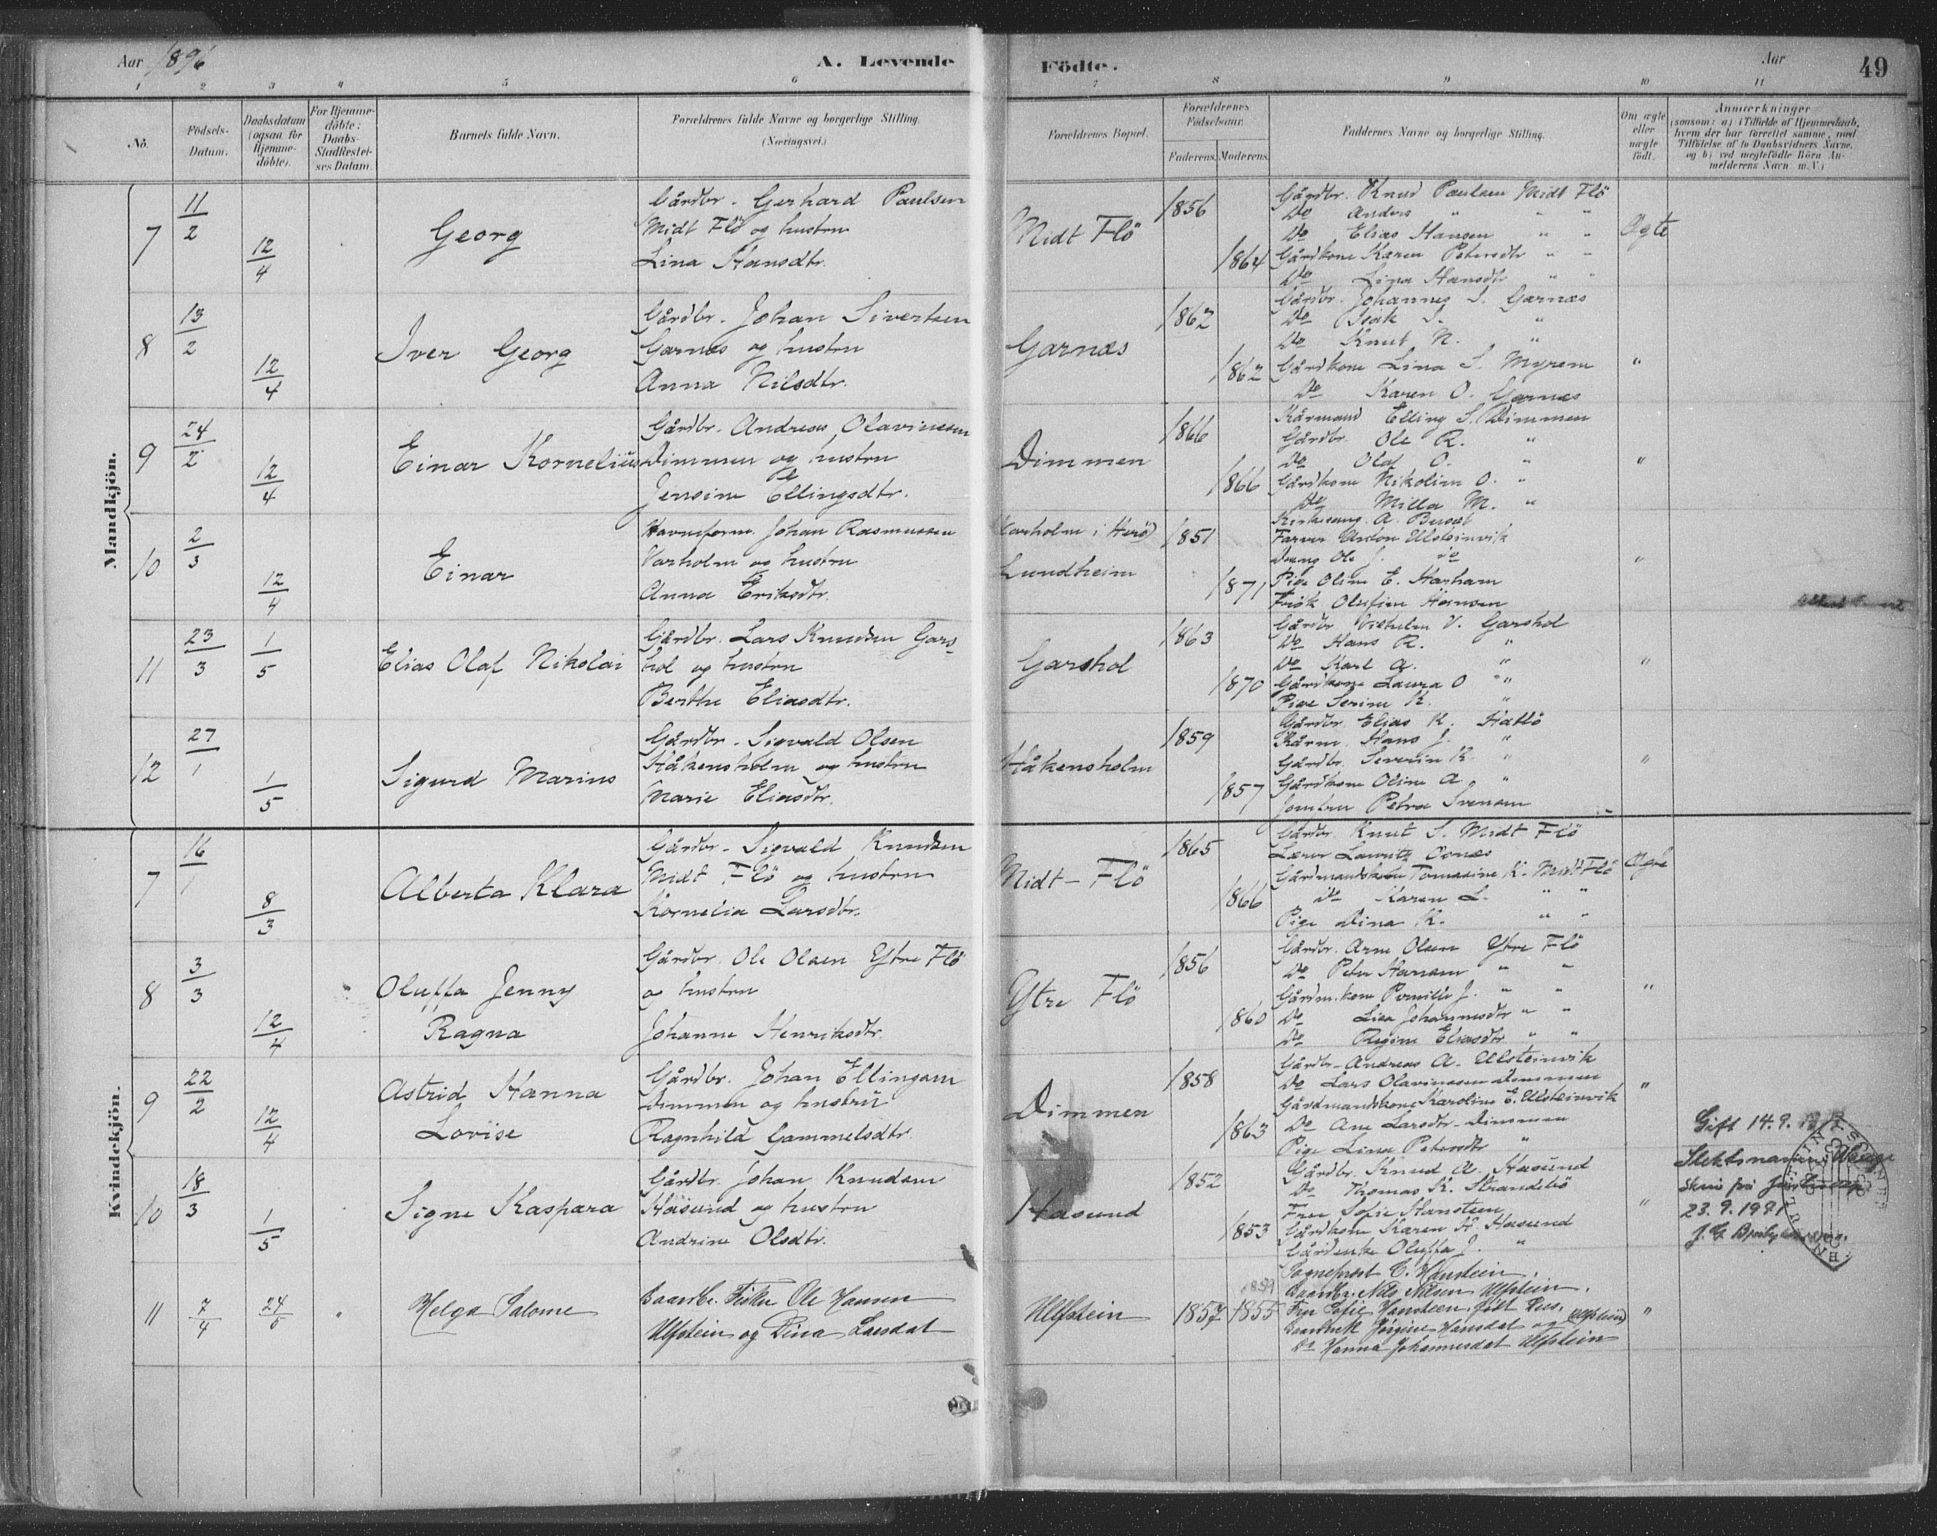 Aar 1896
A. Levende
Födte.
Aar
49
1 2 3 4 5 6 7 8 9 10 11
No.
Födsels-Datum.
Daabsdatum (ogsaa for Hjemme-döbte).
For Hjemme-döbte: Daabs-Stadfestel-ses Datum.
Barnets fulde Navn.
Forældrenes fulde Navne og borgerlige Stilling. (Næringsvei.)
Forældrenes Bopæl.
Forældrenes Födselsaar.
Faderens. Moderens.
Faddernes Navne og borgerlige Stilling.
Om ægte eller uægte födt.
Anmærkninger
(saasom: a) i Tilfælde af Hjemmedaab,
hvem der har forrettet samme, med
Tilföielse af to Daabsvidners Navne,
og b) ved uægtefödte Börn An-
melderens Navn m. V.)
Mandkjön.
7 11/2 12/4 Georg
Gårdbr. Gerhard Paulsen
Midt Flö og hustru
Lina Hansdtr.
Midt Flö 1856 1864
Gårdbr. Knud Paulsen Midt Flö
Do Anders " " "
Do Elias Hansen " "
Gårdkone Karen Petersdtr " "
Do Lina Hansdtr " "
Ægte
8 13/2 12/4 Iver Georg
Gårdbr. Johan Sivertsen
Garnæs og hustru
Anna Nilsdtr.
Garnæs 1862 1862
Gårdbr. Johannes S. Garnæs
Do Isak S. "
Do Knut N. "
Gårdkone Lina S. Myrem
Do Karen O. Garnæs
"
9 24/2 12/4 Einar Kornelius
Gårdbr. Andreas Olavinssen
Dimmen og hustru
Jensine Ellingsdtr.
Dimmen 1866 1866
Kårmand Elling S. Dimmen
Gårdbr. Ole R. "
Do Olaf O. "
Gårdkone Nikoline O. "
Do Milla M. "
"
10 2/3 12/4 Einar
Havneform. Johan Rasmussen
Varholm og hustru
Anna Eriksdtr.
Varholm i Herö
Lundheim 1851 1871
Kirkesang. A. Buset
Farver Anton Ulsteinvik
Dreng Ole J. do
Pige Oline E. Harham
Frök. Olufine Hansen
"
11 23/3 1/5 Elias Olaf Nikolai
Gårdbr. Lars Knudsen Gars-
hol og hustru
Berthe Eliasdtr.
Garshol 1863 1870
Gårdbr Vilhelm V. Garshol
Do Hans R. "
Do Karl A. "
Gårdkone Laura O "
Pige Serine K. "
"
12 27/1 1/5 Sigurd Marius
Gårdbr. Sigvald Olsen
Håkensholm og hustru
Marie Eliasdtr.
Håkensholm 1859 1857
Gårdbr. Elias K. Hatlö
Kårm. Hans J. "
Gårdbr. Severin K. "
Gårdkone Oline A. "
Jomfru Petra Svensen
"
Kvindekjön.
7 16/1 8/3 Alberta Klara
Gårdbr. Sigvald Knudsen
Midt Flö og hustru
Kornelia Larsdtr.
Midt-Flö 1865 1866
Gårdbr Knut S. Midt Flö
Lærer Lauritz Osnæs
Gårdmandskone Tomasine K. Midt Flö
Do Karen L. " "
Pige Dina K. " "
Ægte
8 3/3 12/4 Oluffa Jenny
Ragna
Gårdbr. Ole Olsen Ytre Flö
og hustru
Johanne Henriksdtr.
Ytre Flö 1856 1860
Gårdbr. Arne Olsen Ytre Flö
Do Peter Hansen " "
Gårdm.kone Pernille J. " "
Do Lisa Johannesdtr " "
Do Regine Eliasdtr " "
"
9 22/2 12/4 Astrid Hanna
Lovise
Gårdbr. Johan Ellingsen
Dimmen og hustru
Ragnhild Gammelsdtr.
Dimmen 1858 1863
Gårdbr. Andreas A. Ulsteinvik
Do Lars Olavinssen Dimmen
Gårdmandskone Karoline E. Ulsteinvik
Do Ane Larsdtr. Dimmen
Pige Lina Petersdtr "
"
10 18/3 1/5 Signe Kaspara
Gårdbr. Johan Knudsen
Håsund og hustru
Andrine Olsdtr.
Hasund 1852 1853
Gårdbr. Knud A. Hasund
Do Thomas K. Strandebö
Frue Sofie Hansteen
Gårdkone Karen H. Hasund
Gårdenke Oluffa J. "
"
Gift 14.9.
Slektsnamn
23.9.1981
11 7/4 24/5 " Helga Salome
Gaardbr. Fisker Ole Hansen
Ulfstein og Lina Larsdat
Ulfstein 1857 1855
Sogneprest C. Hansteen.
Gaardbr. Nils Nilsen Ulfstein.
Fru Sofie Hansteen, födt
Gaardenk Jørgine Hansdat og (Ulfstein)
Do Hanna Johannesdat Ulfstein
"